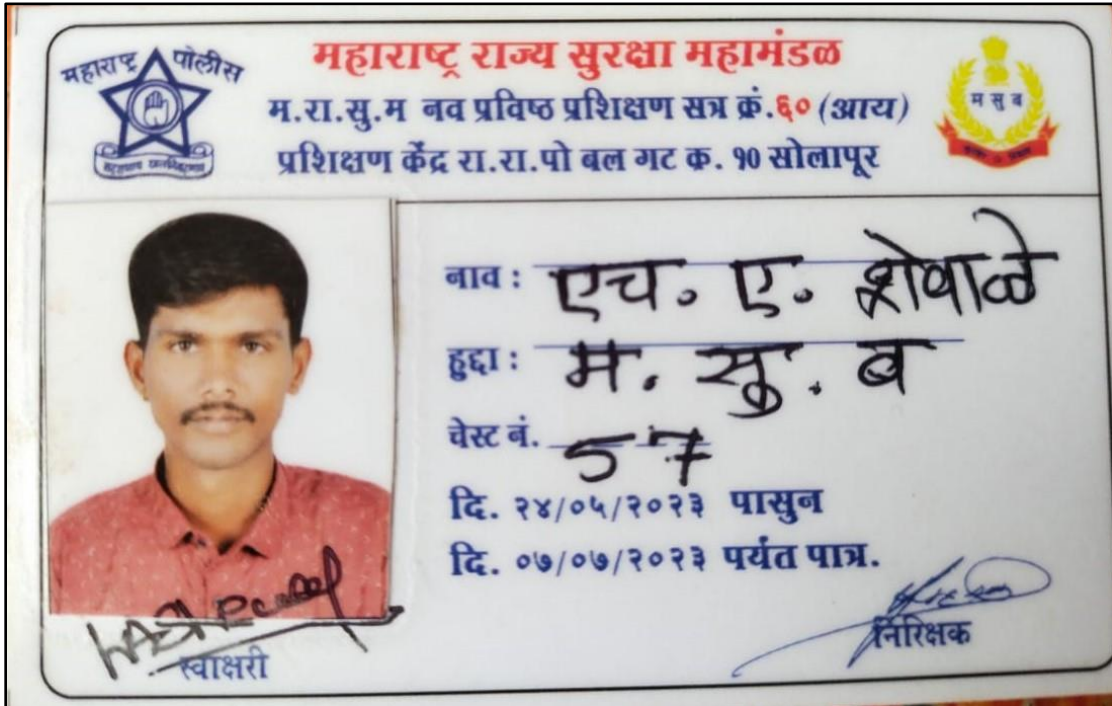 महाराष्ट्र पोलीस
महाराष्ट्र राज्य सुरक्षा महामंडळ
म.रा.सु.म नव प्रविष्ठ प्रशिक्षण सत्र क्रं.६० (आय)
प्रशिक्षण केंद्र रा.रा.पो बल गट क. १० सोलापूर
म सु ब
नाव : एच. ए. शेवाळे
हुद्दा : म. सु. ब
चेस्ट नं. 57
दि. २४/०५/२०२३ पासुन
दि. ०७/०७/२०२३ पर्यंत पात्र.
स्वाक्षरी
निरिक्षक